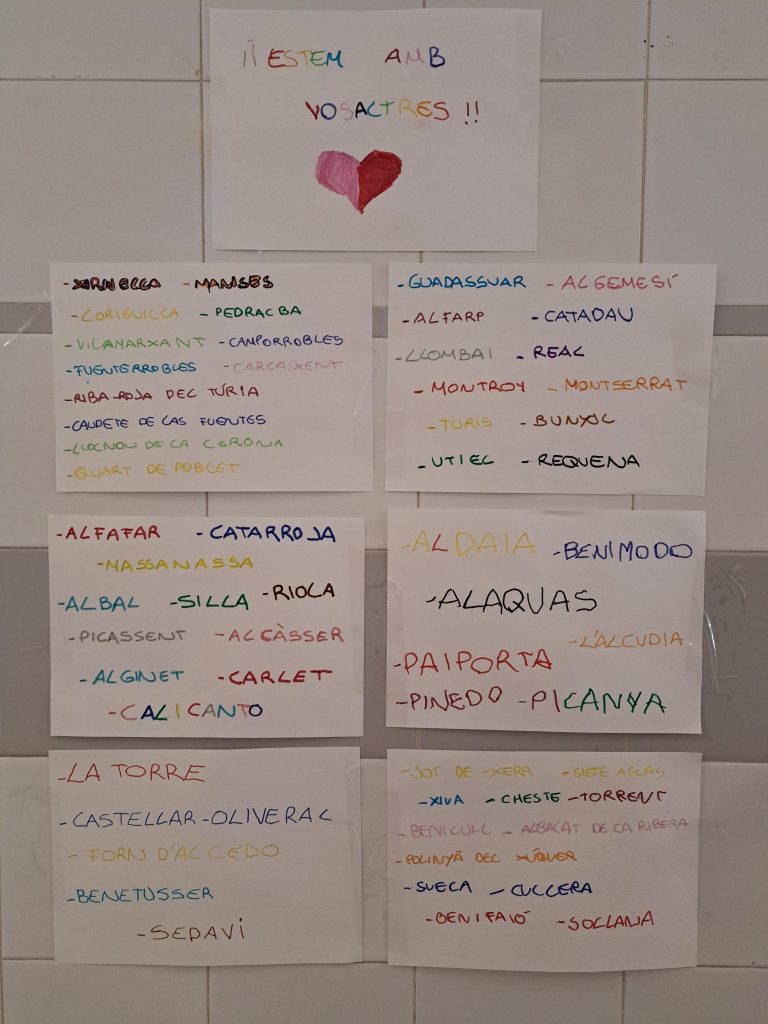 ¡¡ESTEM AMB
VOSALTRES!!
-XIRIVELLA -MANISES
-LORIGUILLA -PEDRALBA
-VILAMARXANT -CAMPORROBLES
-FUENTERROBLES -CARCAIXENT
-RIBA-ROJA DEL TÚRIA
-CAUDETE DE LAS FUENTES
-LLOCNOU DE LA CORONA
-QUART DE POBLET
-GUADASSUAR -ALGEMESÍ
-ALFARP -CATADAU
-LLOMBAI -REAL
-MONTROY -MONTSERRAT
-TURIS -BUNYOL
-UTIEL -REQUENA
-ALFAFAR -CATARROJA
-MASSANASSA
-ALBAL -SILLA -RIOLA
-PICASSENT -ALCÀSSER
-ALGINET -CARLET
-CALICANTO
-ALDAIA -BENIMODO
-ALAQUAS
-L'ALCUDIA
-PAIPORTA
-PINEDO -PICANYA
-LA TORRE
-CASTELLAR-OLIVERAL
-FORN D'ALCEDO
-BENETUSSER
-SEDAVÍ
-SOT DE XERA -SIETE AGUAS
-XIVA -CHESTE -TORRENT
-BENICULL -ALBALAT DE LA RIBERA
-POLINYÀ DEL XÚQUER
-SUECA -CULLERA
-BENIFAIÓ -SOLLANA